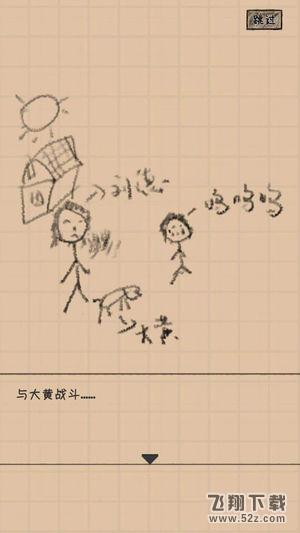 跳过
呜呜呜
大黄
与大黄战斗......
飞翔下载
www.52z.com